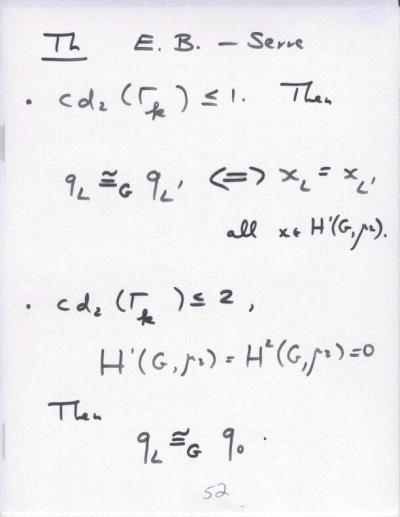 Th E. B. – Serre
• cd₂ (Γ_k) ≤ 1. Then
q_L ≅_G q_L' <=> x_L = x_L'
all x ∈ H¹(G, μ₂).
• cd₂ (Γ_k) ≤ 2,
H¹(G, μ₂) = H²(G, μ₂) = 0
Then
q_L ≅_G q₀.
52